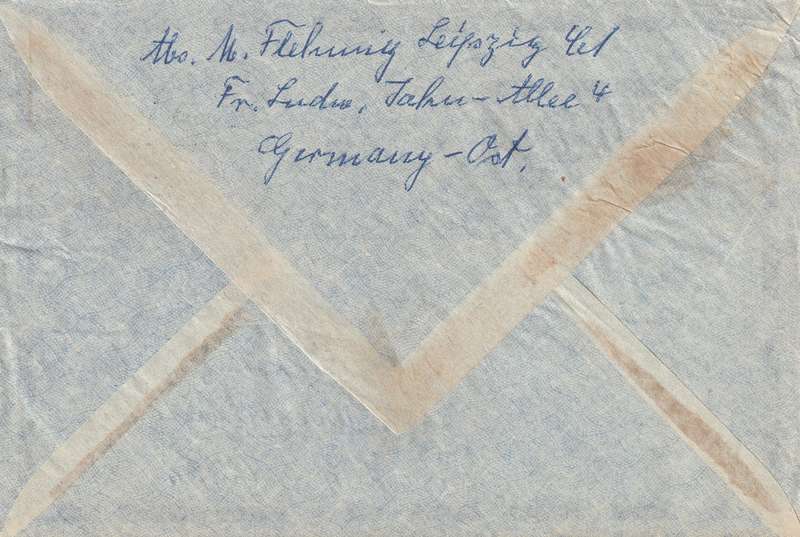 Abs. M. Flehmig Leipzig C1
Fr. Ludw. Jahn-Allee 4
Germany-Ost.